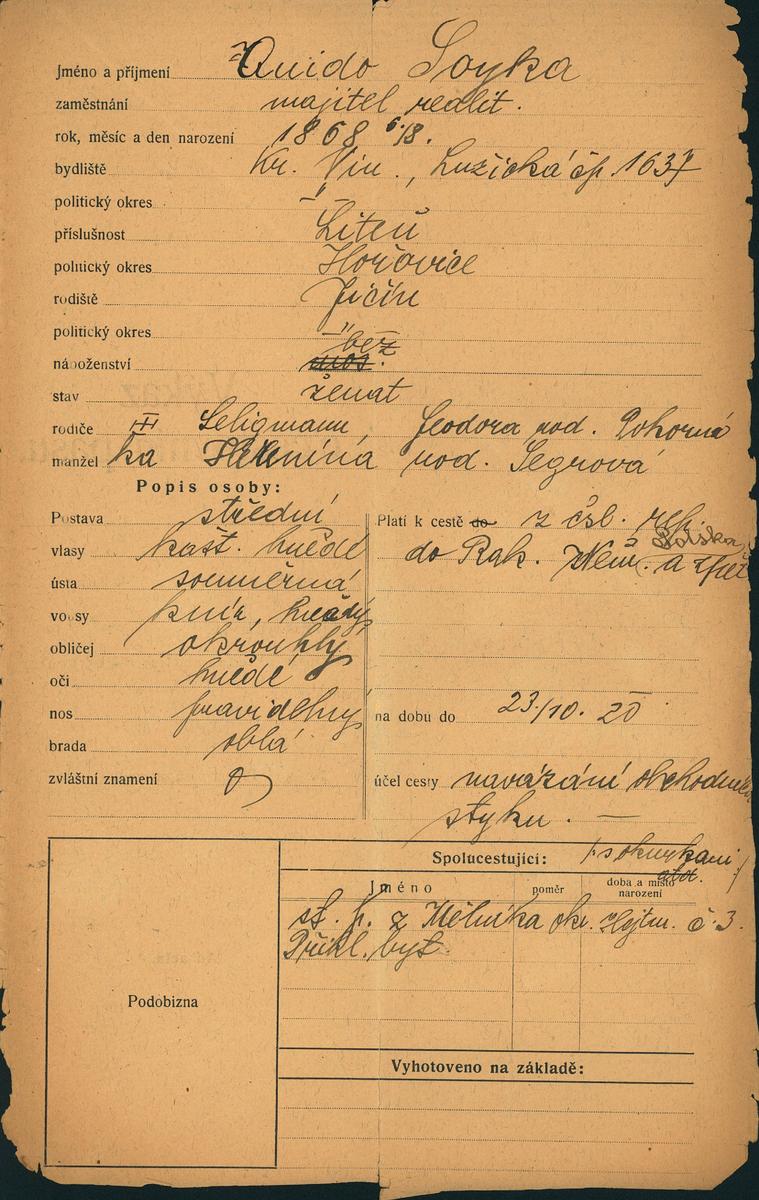 Jméno a příjmení Quido Soyka
zaměstnání majitel realit.
rok, měsíc a den narození 1868 6./8.
bydliště Kr. Vin., Lužická čp. 1637
politický okres "
příslušnost Liteň
politický okres Hořovice
rodiště Jičín
politický okres "
náboženství bez
stav ženat
rodiče Seligmann, Teodora rod. Pokorná
manžel ka rod. Segrová
Popis osoby:
Postava střední
vlasy kašt. hnědé
ústa souměrná
vousy knír, hnědý
obličej okrouhlý
oči hnědé
nos pravidelný
brada oblá
zvláštní znamení
Platí k cestě do z čsl. rep.
do Rak. Něm. Polska a zpět
na dobu do 23./10. 20
účel cesty navázání obchodního
styku. —
Spolucestující:
Jméno poměr doba a místo narození
st. p. z Mělníka okr. Hejtm. č. 3.
Přihl. byt.
Podobizna
Vyhotoveno na základě: